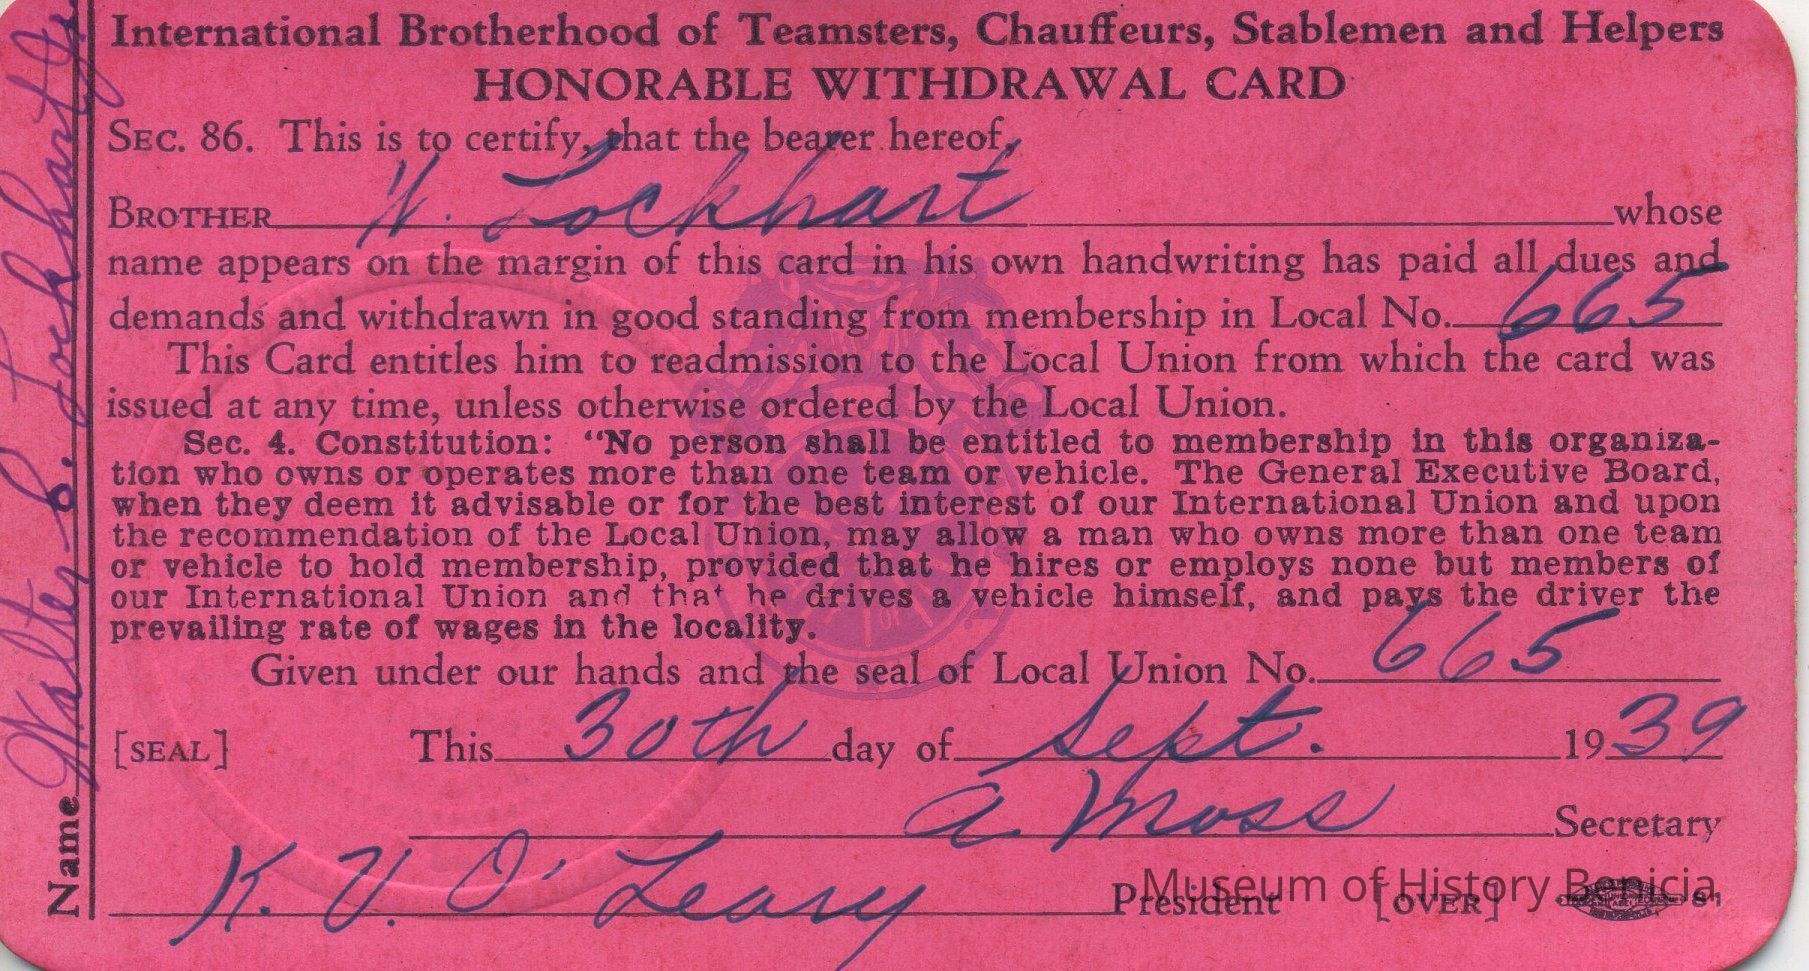 International Brotherhood of Teamsters, Chauffeurs, Stablemen and Helpers
HONORABLE WITHDRAWAL CARD
SEC. 86. This is to certify, that the bearer hereof,
BROTHER W. Lockhart whose
name appears on the margin of this card in his own handwriting has paid all dues and
demands and withdrawn in good standing from membership in Local No. 665
This Card entitles him to readmission to the Local Union from which the card was
issued at any time, unless otherwise ordered by the Local Union.
Sec. 4. Constitution: "No person shall be entitled to membership in this organiza-
tion who owns or operates more than one team or vehicle. The General Executive Board,
when they deem it advisable or for the best interest of our International Union and upon
the recommendation of the Local Union, may allow a man who owns more than one team
or vehicle to hold membership, provided that he hires or employs none but members of
our International Union and that he drives a vehicle himself, and pays the driver the
prevailing rate of wages in the locality.
Given under our hands and the seal of Local Union No. 665
[SEAL] This 30th day of Sept. 1939
A Moss Secretary
K. V. O'Leary President [OVER] 81
Museum of History Benicia
Name Walter L. Lockhart Jr.